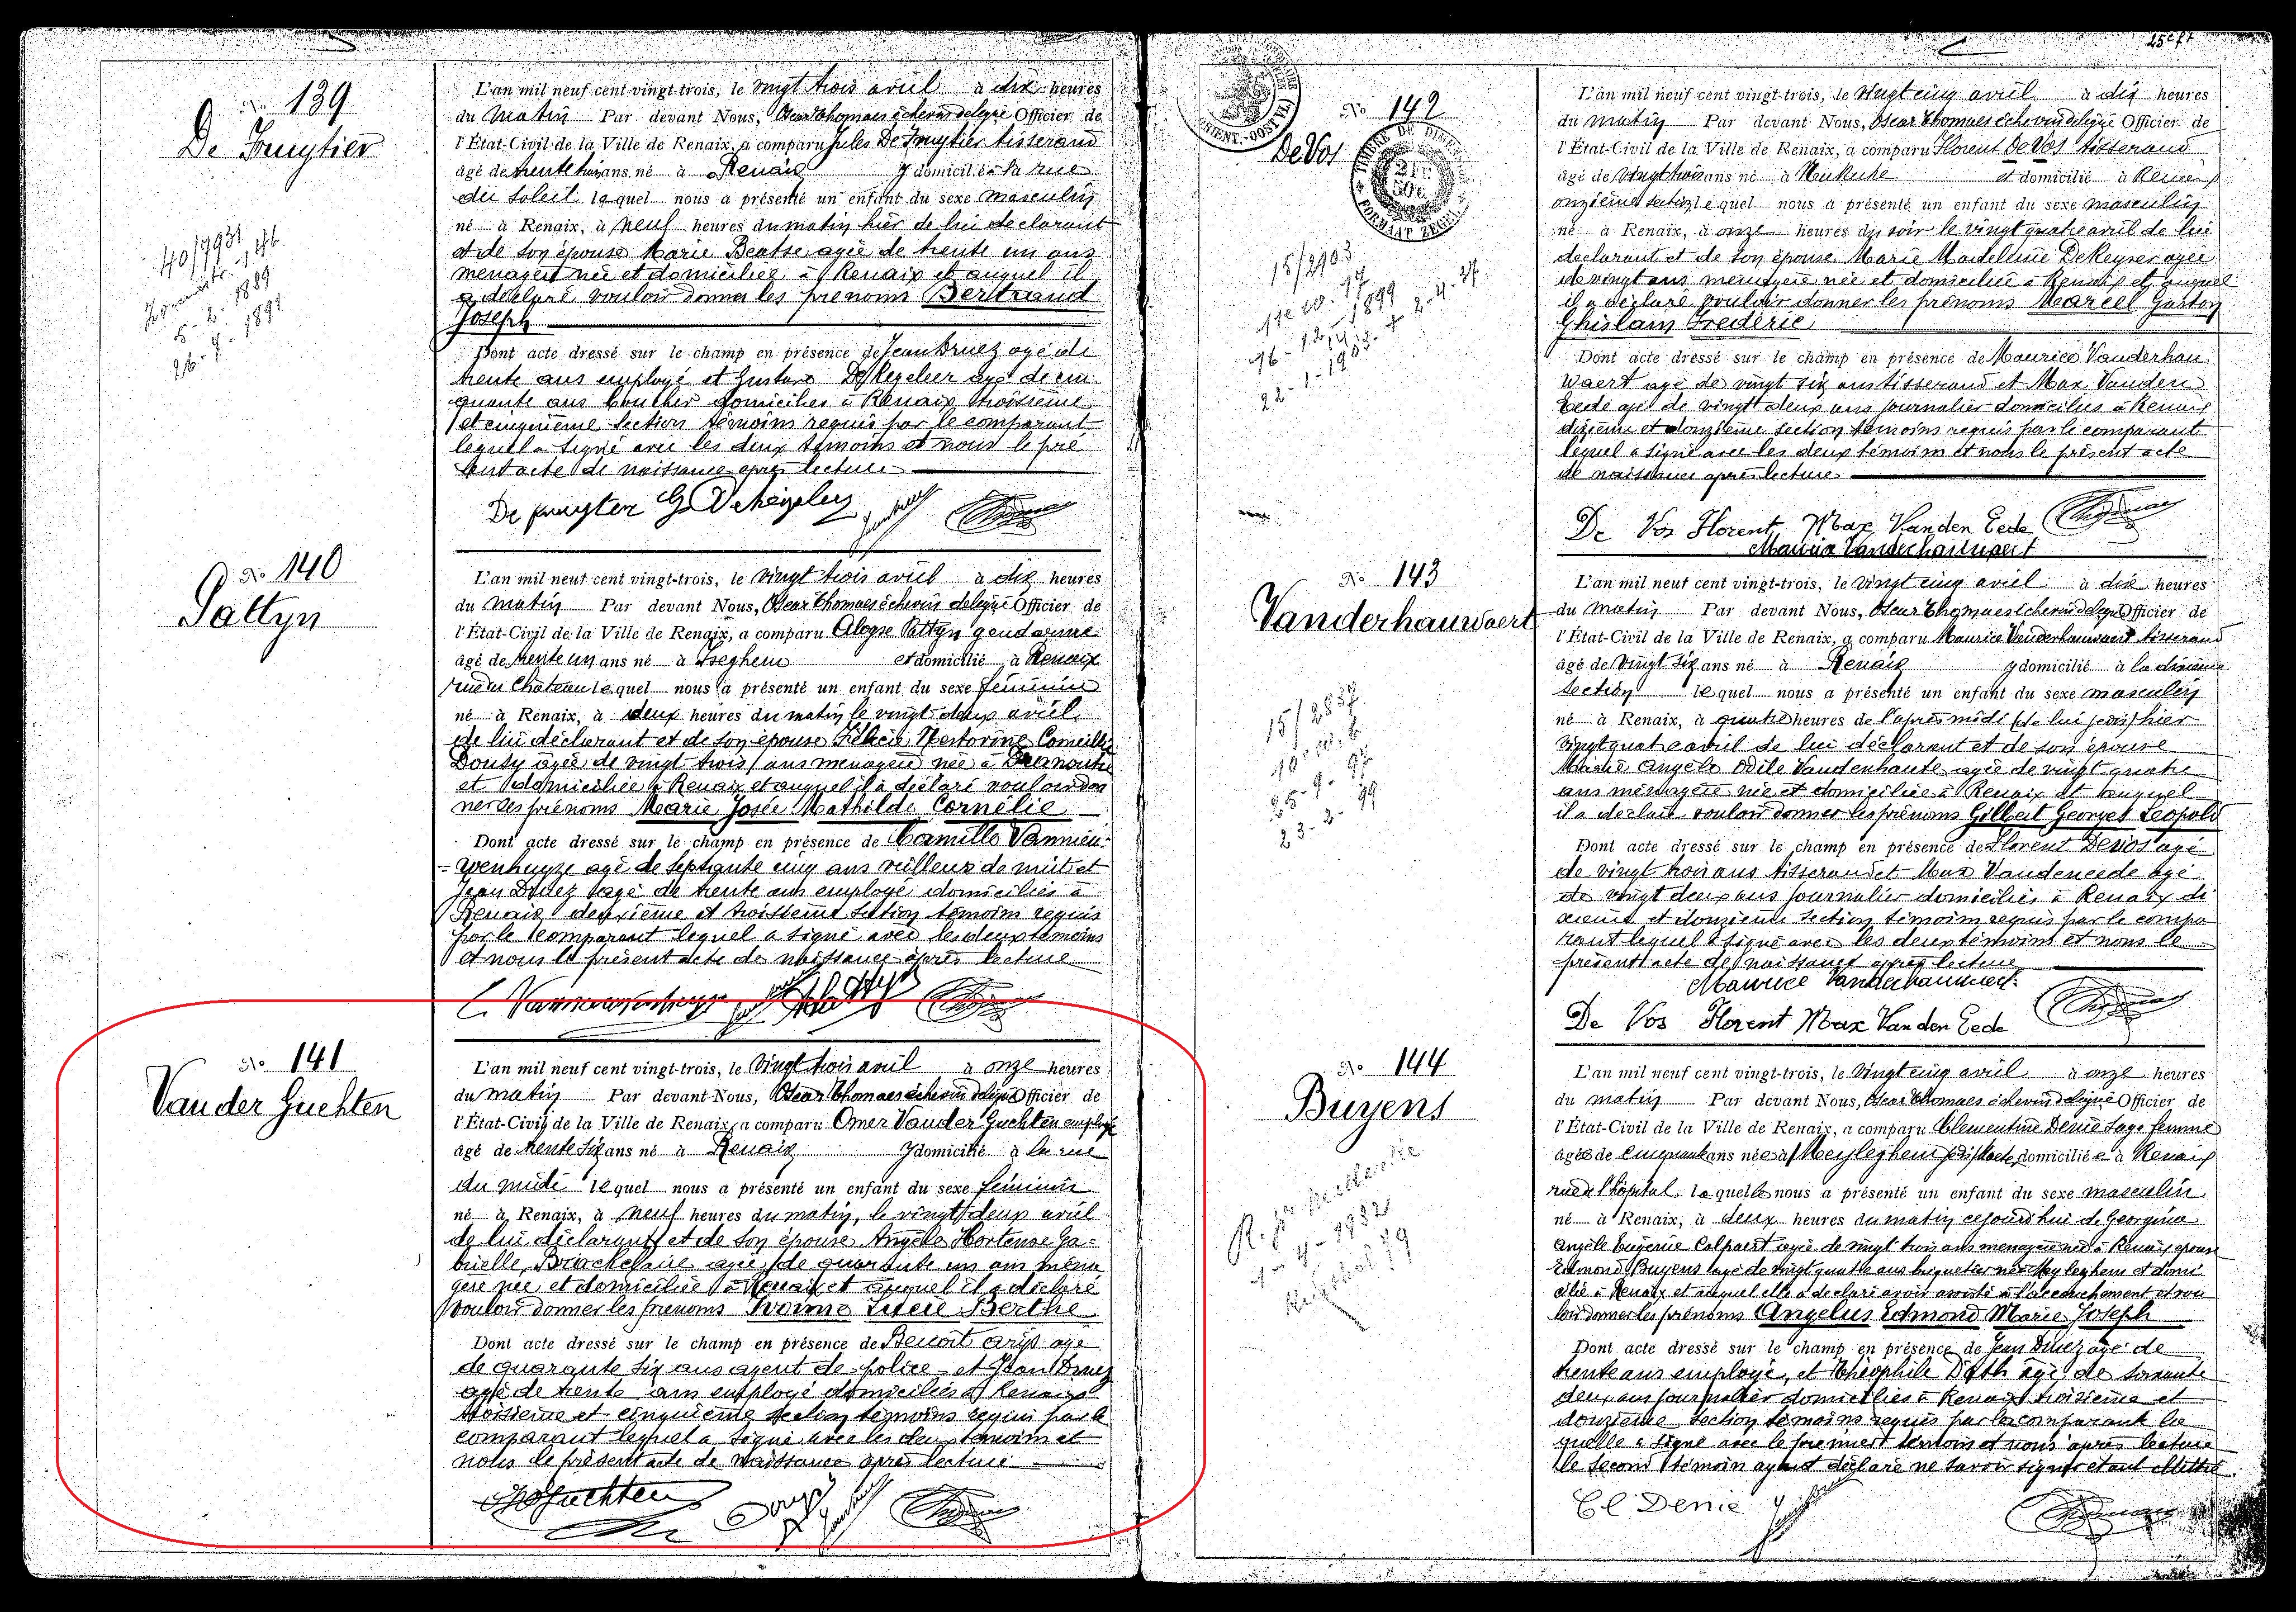 No 139
De Fruytier
40/7931
5-2-1889
26-7-1891
L'an mil neuf cent vingt-trois, le vingt trois avril à dix heures
du matin Par devant Nous, Oscar Thomaes échevin délégué Officier de
l'État-Civil de la Ville de Renaix, a comparu Jules De Fruytier tisserand
âgé de trente trois ans né à Renaix y domicilié à la rue
du Soleil lequel nous a présenté un enfant du sexe masculin
né à Renaix, à neuf heures du matin hier de lui déclarant
et de son épouse Marie Beatse agée de trente un ans
ménagère née et domiciliée à Renaix et auquel il
a déclaré vouloir donner les prénoms Bertrand
Joseph
Dont acte dressé sur le champ en présence de Jean Druez agé de
trente ans employé et Gustave De Kegeleer agé de cin
quante ans boucher domiciliés à Renaix troisième
et cinquième section témoins requis par le comparant
lequel a signé avec les deux témoins et nous le pré
sent acte de naissance après lecture
De fruytier G Dekegeleer
No 140
Pattyn
L'an mil neuf cent vingt-trois, le vingt trois avril à dix heures
du matin Par devant Nous, Oscar Thomaes échevin délégué Officier de
l'État-Civil de la Ville de Renaix, a comparu Aloyse Pattyn gendarme
âgé de trente un ans né à Iseghem et domicilié à Renaix
rue du Château lequel nous a présenté un enfant du sexe féminin
né à Renaix, à deux heures du matin le vingt deux avril
de lui déclarant et de son épouse Félicie Nestorine Corneillie
Dousy agée de vingt trois ans ménagère née à
et domiciliée à Renaix et auquel il a déclaré vouloir don
ner les prénoms Marie Josée Mathilde Cornélie
Dont acte dressé sur le champ en présence de Camille Vannieu-
=wenhuyze agé de septante cinq ans veilleur de nuit et
Jean Druez agé de trente ans employé domiciliés à
Renaix deuxième et troisième section témoins requis
par le comparant lequel a signé avec les deux témoins
et nous le présent acte de naissance après lecture
No 141
Van der Guchten
L'an mil neuf cent vingt-trois, le vingt trois avril à onze heures
du matin Par devant Nous, Oscar Thomaes échevin délégué Officier de
l'État-Civil de la Ville de Renaix, a comparu Omer Vander Guchten employé
âgé de trente six ans né à Renaix y domicilié à la rue
du midi lequel nous a présenté un enfant du sexe féminin
né à Renaix, à neuf heures du matin, le vingt deux avril
de lui déclarant et de son épouse Angèle Hortense Ga=
brielle Brackelaire agée de quarante un ans ména
gère née et domiciliée à Renaix et auquel il a déclaré
vouloir donner les prénoms Ivonne Lucie Berthe
Dont acte dressé sur le champ en présence de Benoit Arijs agé
de quarante six ans agent de police et Jean Druez
agé de trente ans employé domiciliés à Renaix
troisième et cinquième section témoins requis par le
comparant lequel a signé avec les deux témoins et
nous le présent acte de naissance après lecture
25e ft
No 142
De Vos
TIMBRE DE DIMENSION
2 FR 50c
FORMAAT ZEGEL
15/2903
16-12-1899
22-1-1903
L'an mil neuf cent vingt-trois, le vingt cinq avril à dix heures
du matin Par devant Nous, Oscar Thomaes échevin délégué Officier de
l'État-Civil de la Ville de Renaix, a comparu Florent De Vos tisserand
âgé de vingt trois ans né à Nukerke et domicilié à Renaix
onzième section lequel nous a présenté un enfant du sexe masculin
né à Renaix, à onze heures du soir le vingt quatre avril de lui
déclarant et de son épouse Marie Madelleine De Keyser agée
de vingt ans ménagère née et domiciliée à Renaix et auquel
il a déclaré vouloir donner les prénoms Marcel Gaston
Ghislain Frédéric
Dont acte dressé sur le champ en présence de Maurice Vanderhau
waert agé de vingt six ans tisserand et Max Vanden
Eede agé de vingt deux ans journalier domiciliés à Renaix
dixième et douzième section témoins requis par le comparant
lequel a signé avec les deux témoins et nous le présent acte
de naissance après lecture
De Vos Florent Max Vanden Eede
Maurice Vanderhauwaert
No 143
Vanderhauwaert
15/2837
25-9-97
23-2-99
L'an mil neuf cent vingt-trois, le vingt cinq avril à dix heures
du matin Par devant Nous, Oscar Thomaes échevin délégué Officier de
l'État-Civil de la Ville de Renaix, a comparu Maurice Vanderhauwaert tisserand
âgé de vingt six ans né à Renaix y domicilié à la dixième
section lequel nous a présenté un enfant du sexe masculin
né à Renaix, à quatre heures de l'après midi (de lui) hier
vingt quatre avril de lui déclarant et de son épouse
Marie Angèle Odile Vandenhaute agée de vingt quatre
ans ménagère née et domiciliée à Renaix et auquel
il a déclaré vouloir donner les prénoms Gilbert Georges Léopold
Dont acte dressé sur le champ en présence de Florent Devos agé
de vingt trois ans tisserand et Max Vandeneede agé
de vingt deux ans journalier domiciliés à Renaix di
xième et douzième section témoins requis par le compa
rant lequel a signé avec les deux témoins et nous le
présent acte de naissance après lecture
Maurice Vanderhauwaert
De Vos Florent Max Van den Eede
No 144
Buyens
1-4-1932
L'an mil neuf cent vingt-trois, le vingt cinq avril à onze heures
du matin Par devant Nous, Oscar Thomaes échevin délégué Officier de
l'État-Civil de la Ville de Renaix, a comparu Clementine Denie sage femme
âgée de cinquante ans née à Meyleghem domiciliée à Renaix
rue de l'hôpital laquelle nous a présenté un enfant du sexe masculin
né à Renaix, à deux heures du matin cejourd'hui de Georgina
Angèle Eugénie Colpaert agée de vingt trois ans ménagère née à Renaix épouse
Edmond Buyens agé de vingt quatre ans briquetier né à Meyleghem et domi
cilié à Renaix et auquel elle a déclaré avoir assisté à l'accouchement et vou
loir donner les prénoms Angelus Edmond Marie Joseph
Dont acte dressé sur le champ en présence de Jean Druez agé de
trente ans employé, et Théophile D'ath agé de soixante
deux ans journalier domiciliés à Renaix troisième et
douzième section témoins requis par la comparant la
quelle a signé avec le premier témoin et nous après lecture
le second témoin ayant déclaré ne savoir signer étant illettré
Cl Denie